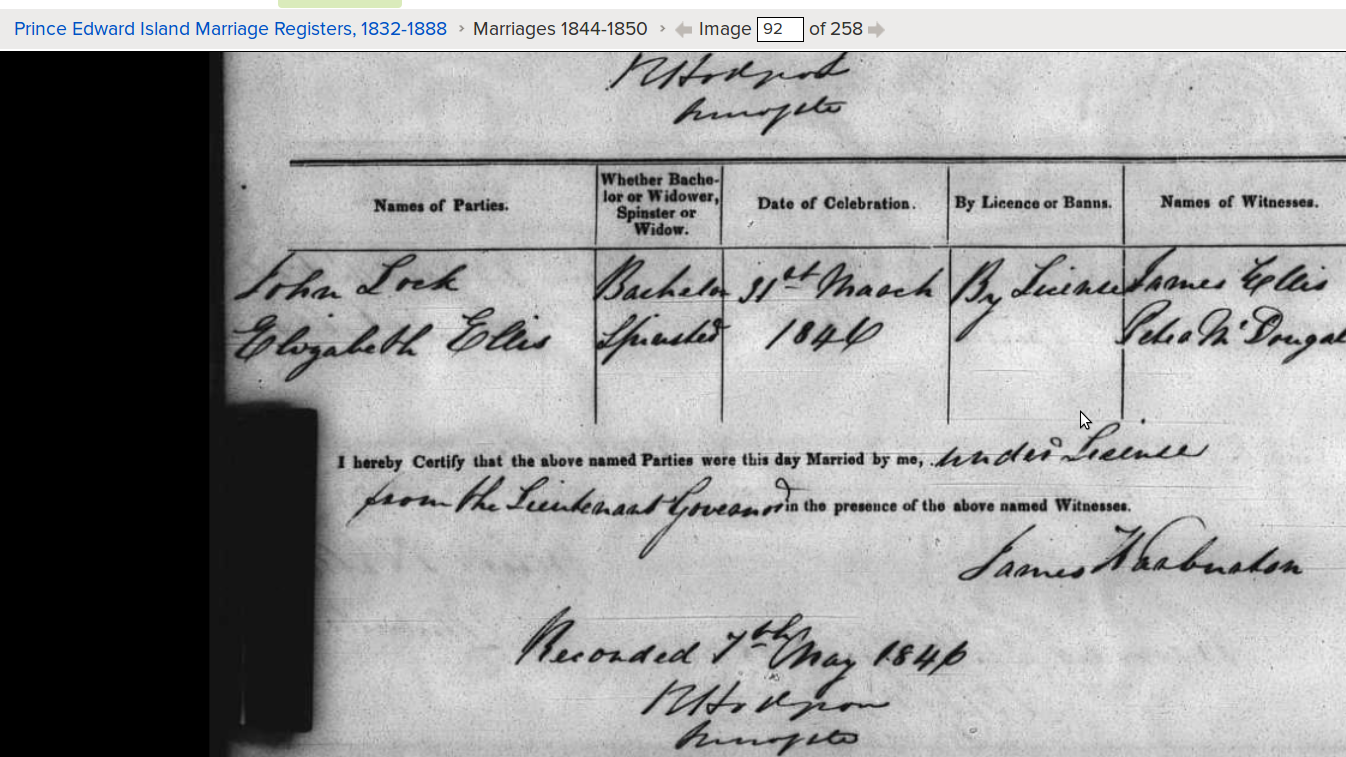 Prince Edward Island Marriage Registers, 1832-1888 › Marriages 1844-1850 › Image 92 of 258
Hodgson
Names of Parties. Whether Bachelor or Widower, Spinster or Widow. Date of Celebration. By Licence or Banns. Names of Witnesses.
John Lock Bachelor 31st March By License James Ellis
Elizabeth Ellis Spinster 1846 Peter McDougal
I hereby Certify that the above named Parties were this day Married by me, under License
from the Lieutenant Governor in the presence of the above named Witnesses.
James Warburton
Recorded 7th May 1846
Hodgson